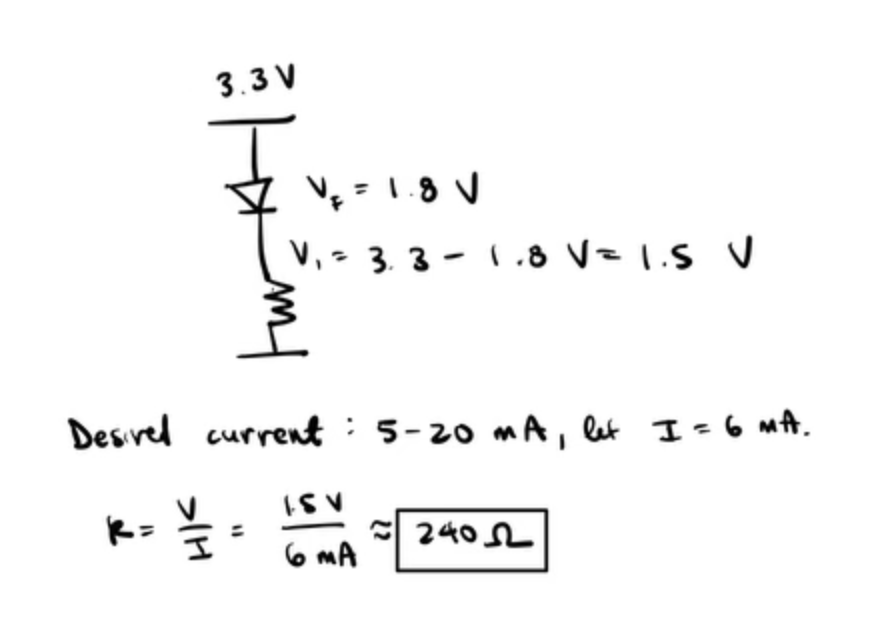 3.3 V
V_F = 1.8 V
V_1 = 3.3 - 1.8 V = 1.5 V
Desired current : 5-20 mA, let I = 6 mA.
R = V/I = 1.5 V / 6 mA ≈ 240 Ω